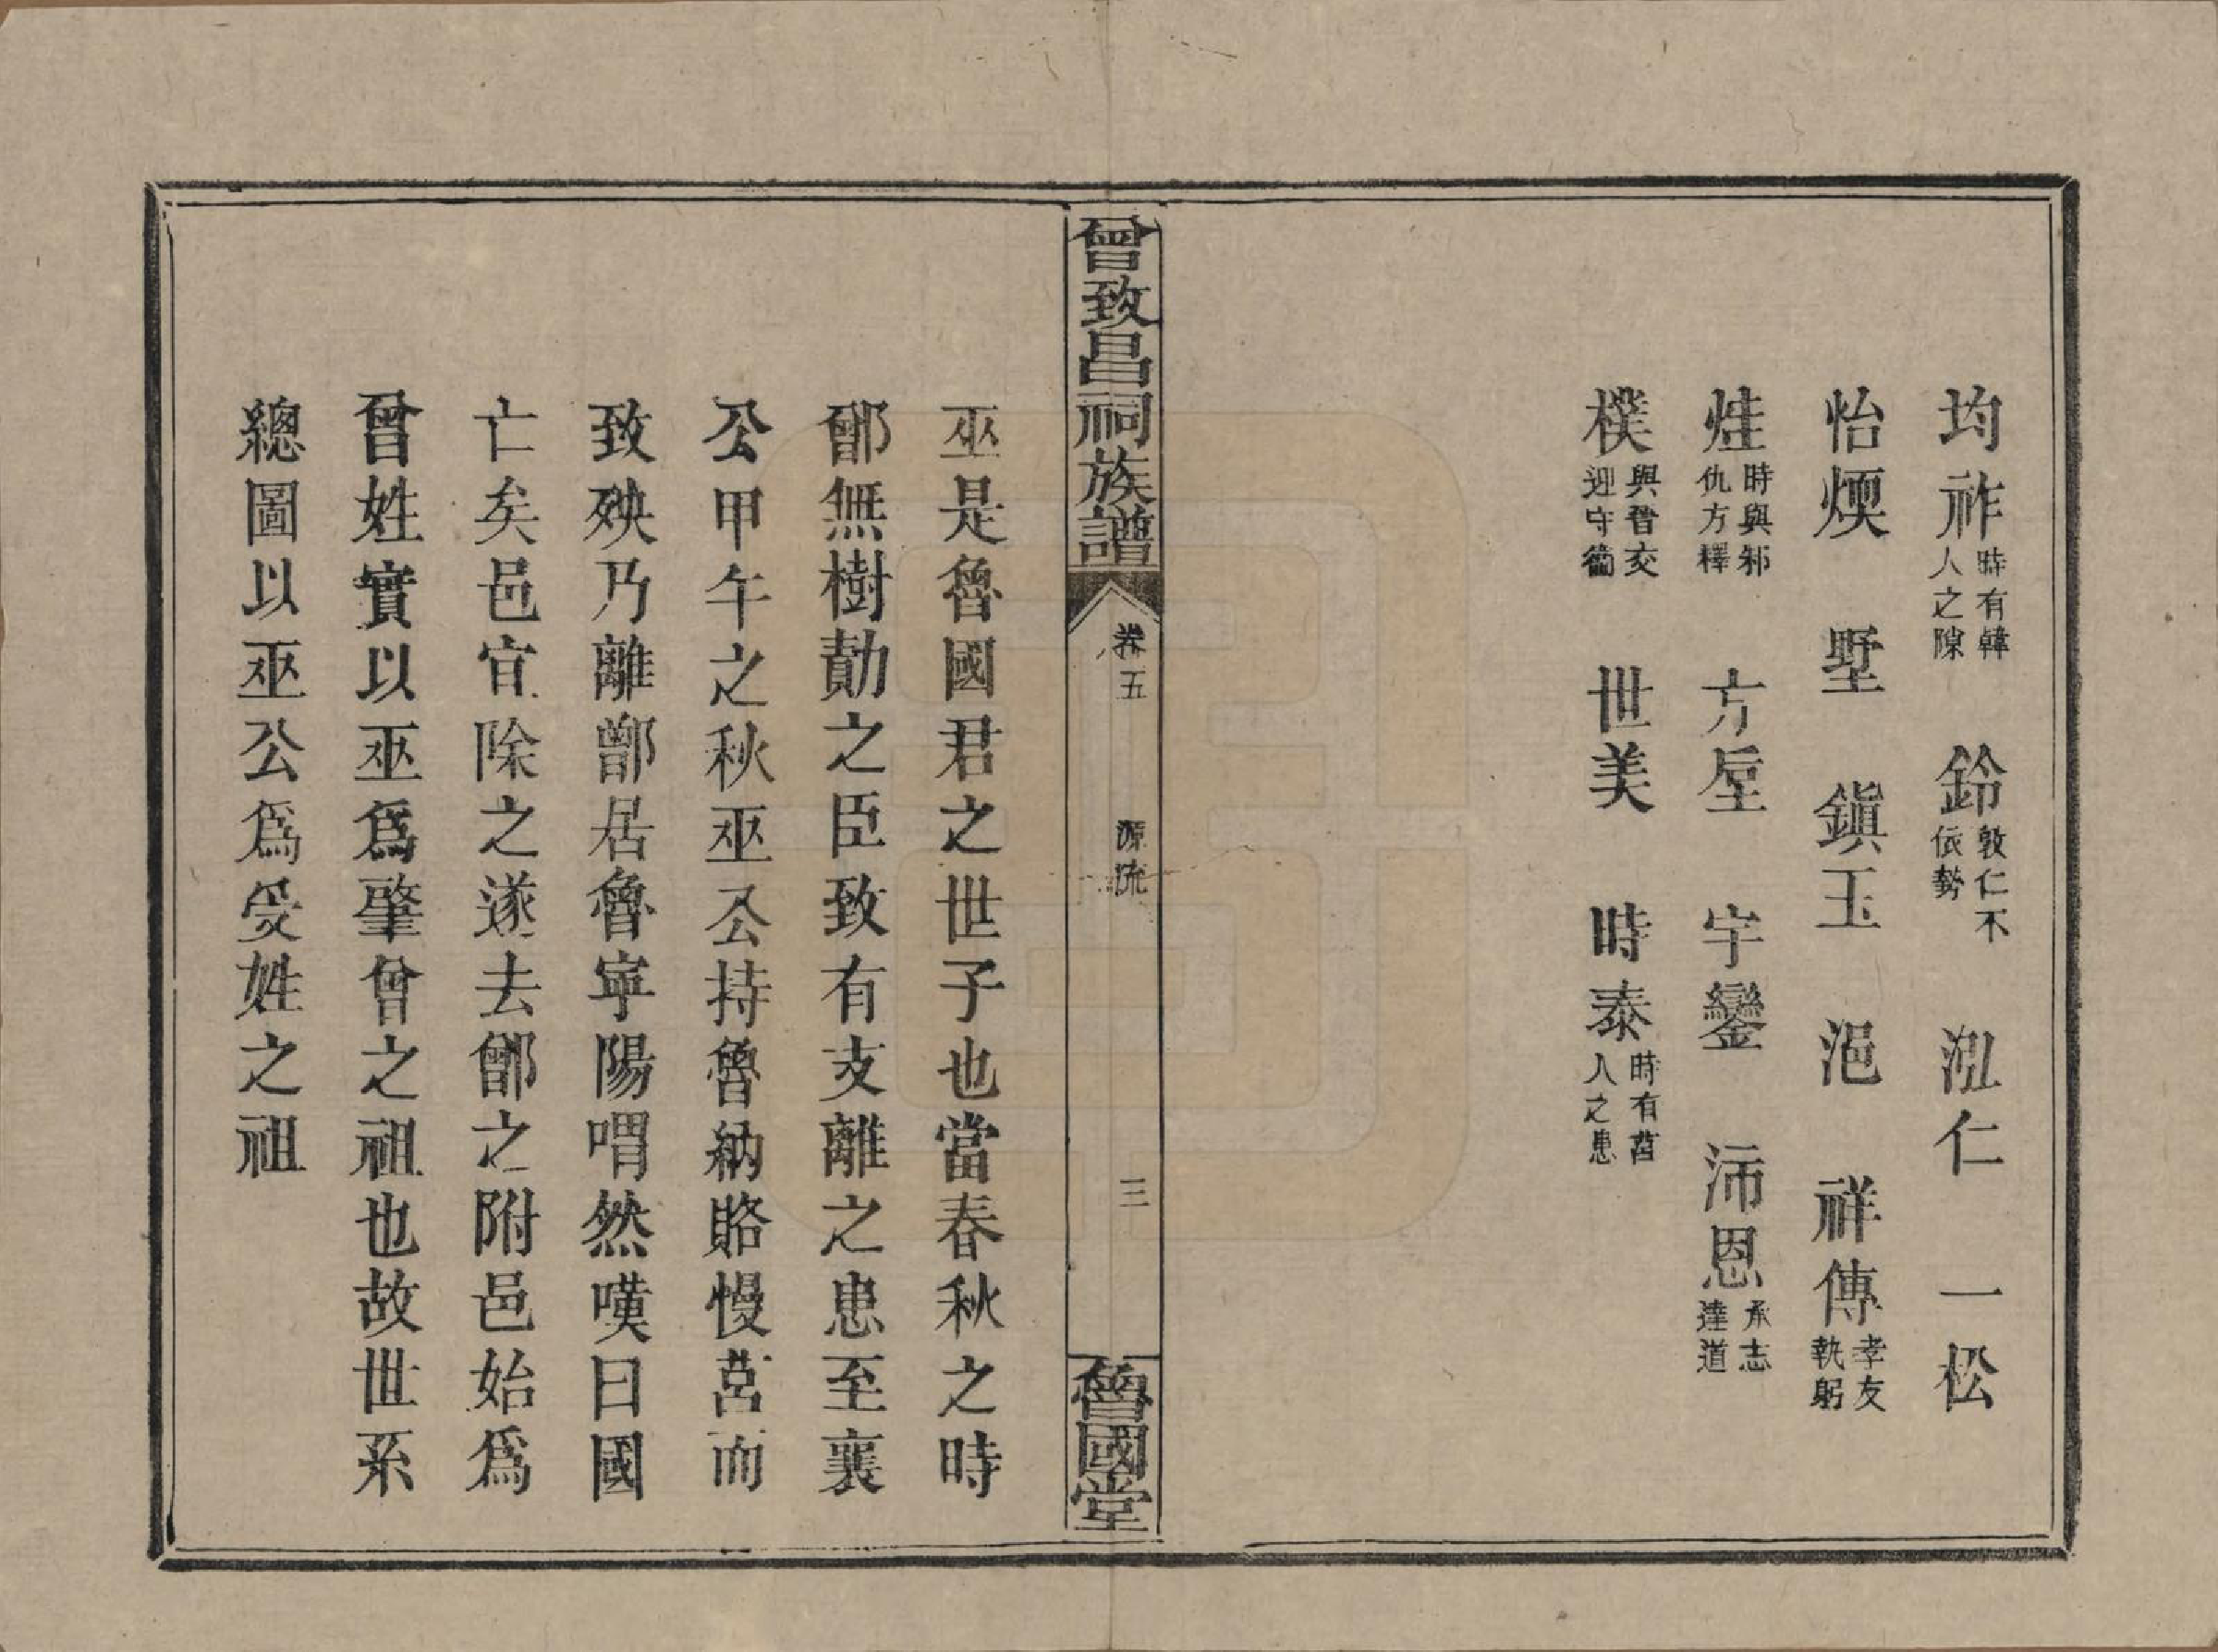 均祚時有韓人之隙　鈴敦仁不依勢　泓仁　一松
怡煗　墅　鎭玉　浥　祥傳孝友執躬
烓時與邾仇方釋　方垕　宇鑾　沛恩承志達道
樸與晉交迎守簡　世美　時泰時有酋人之患
曾致昌祠族譜　卷五　源流　三　魯國堂
巫是魯國君之世子也當春秋之時
鄫無樹勣之臣致有支離之患至襄
公甲午之秋巫公持魯納賂慢莒而
致殃乃離鄫居魯寧陽喟然嘆曰國
亡矣邑宜除之遂去鄫之附邑始爲
曾姓實以巫爲肇曾之祖也故世系
總圖以巫公爲受姓之祖